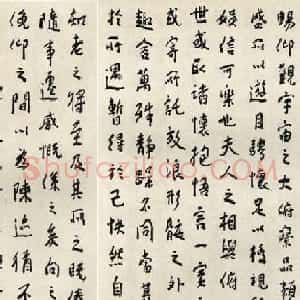 暢仰觀宇宙之大俯察品類
盛所以遊目騁懷足以極視
娛信可樂也夫人之相與俯
世或取諸懷抱悟言一室
或寄所託放浪形骸之外
趣舍萬殊靜躁不同當其
於所遇暫得於己快然自
知老之將至及其所之既倦
隨事遷感慨係之矣向之
俛仰之間以為陳迹猶不
Shufaziliao.com